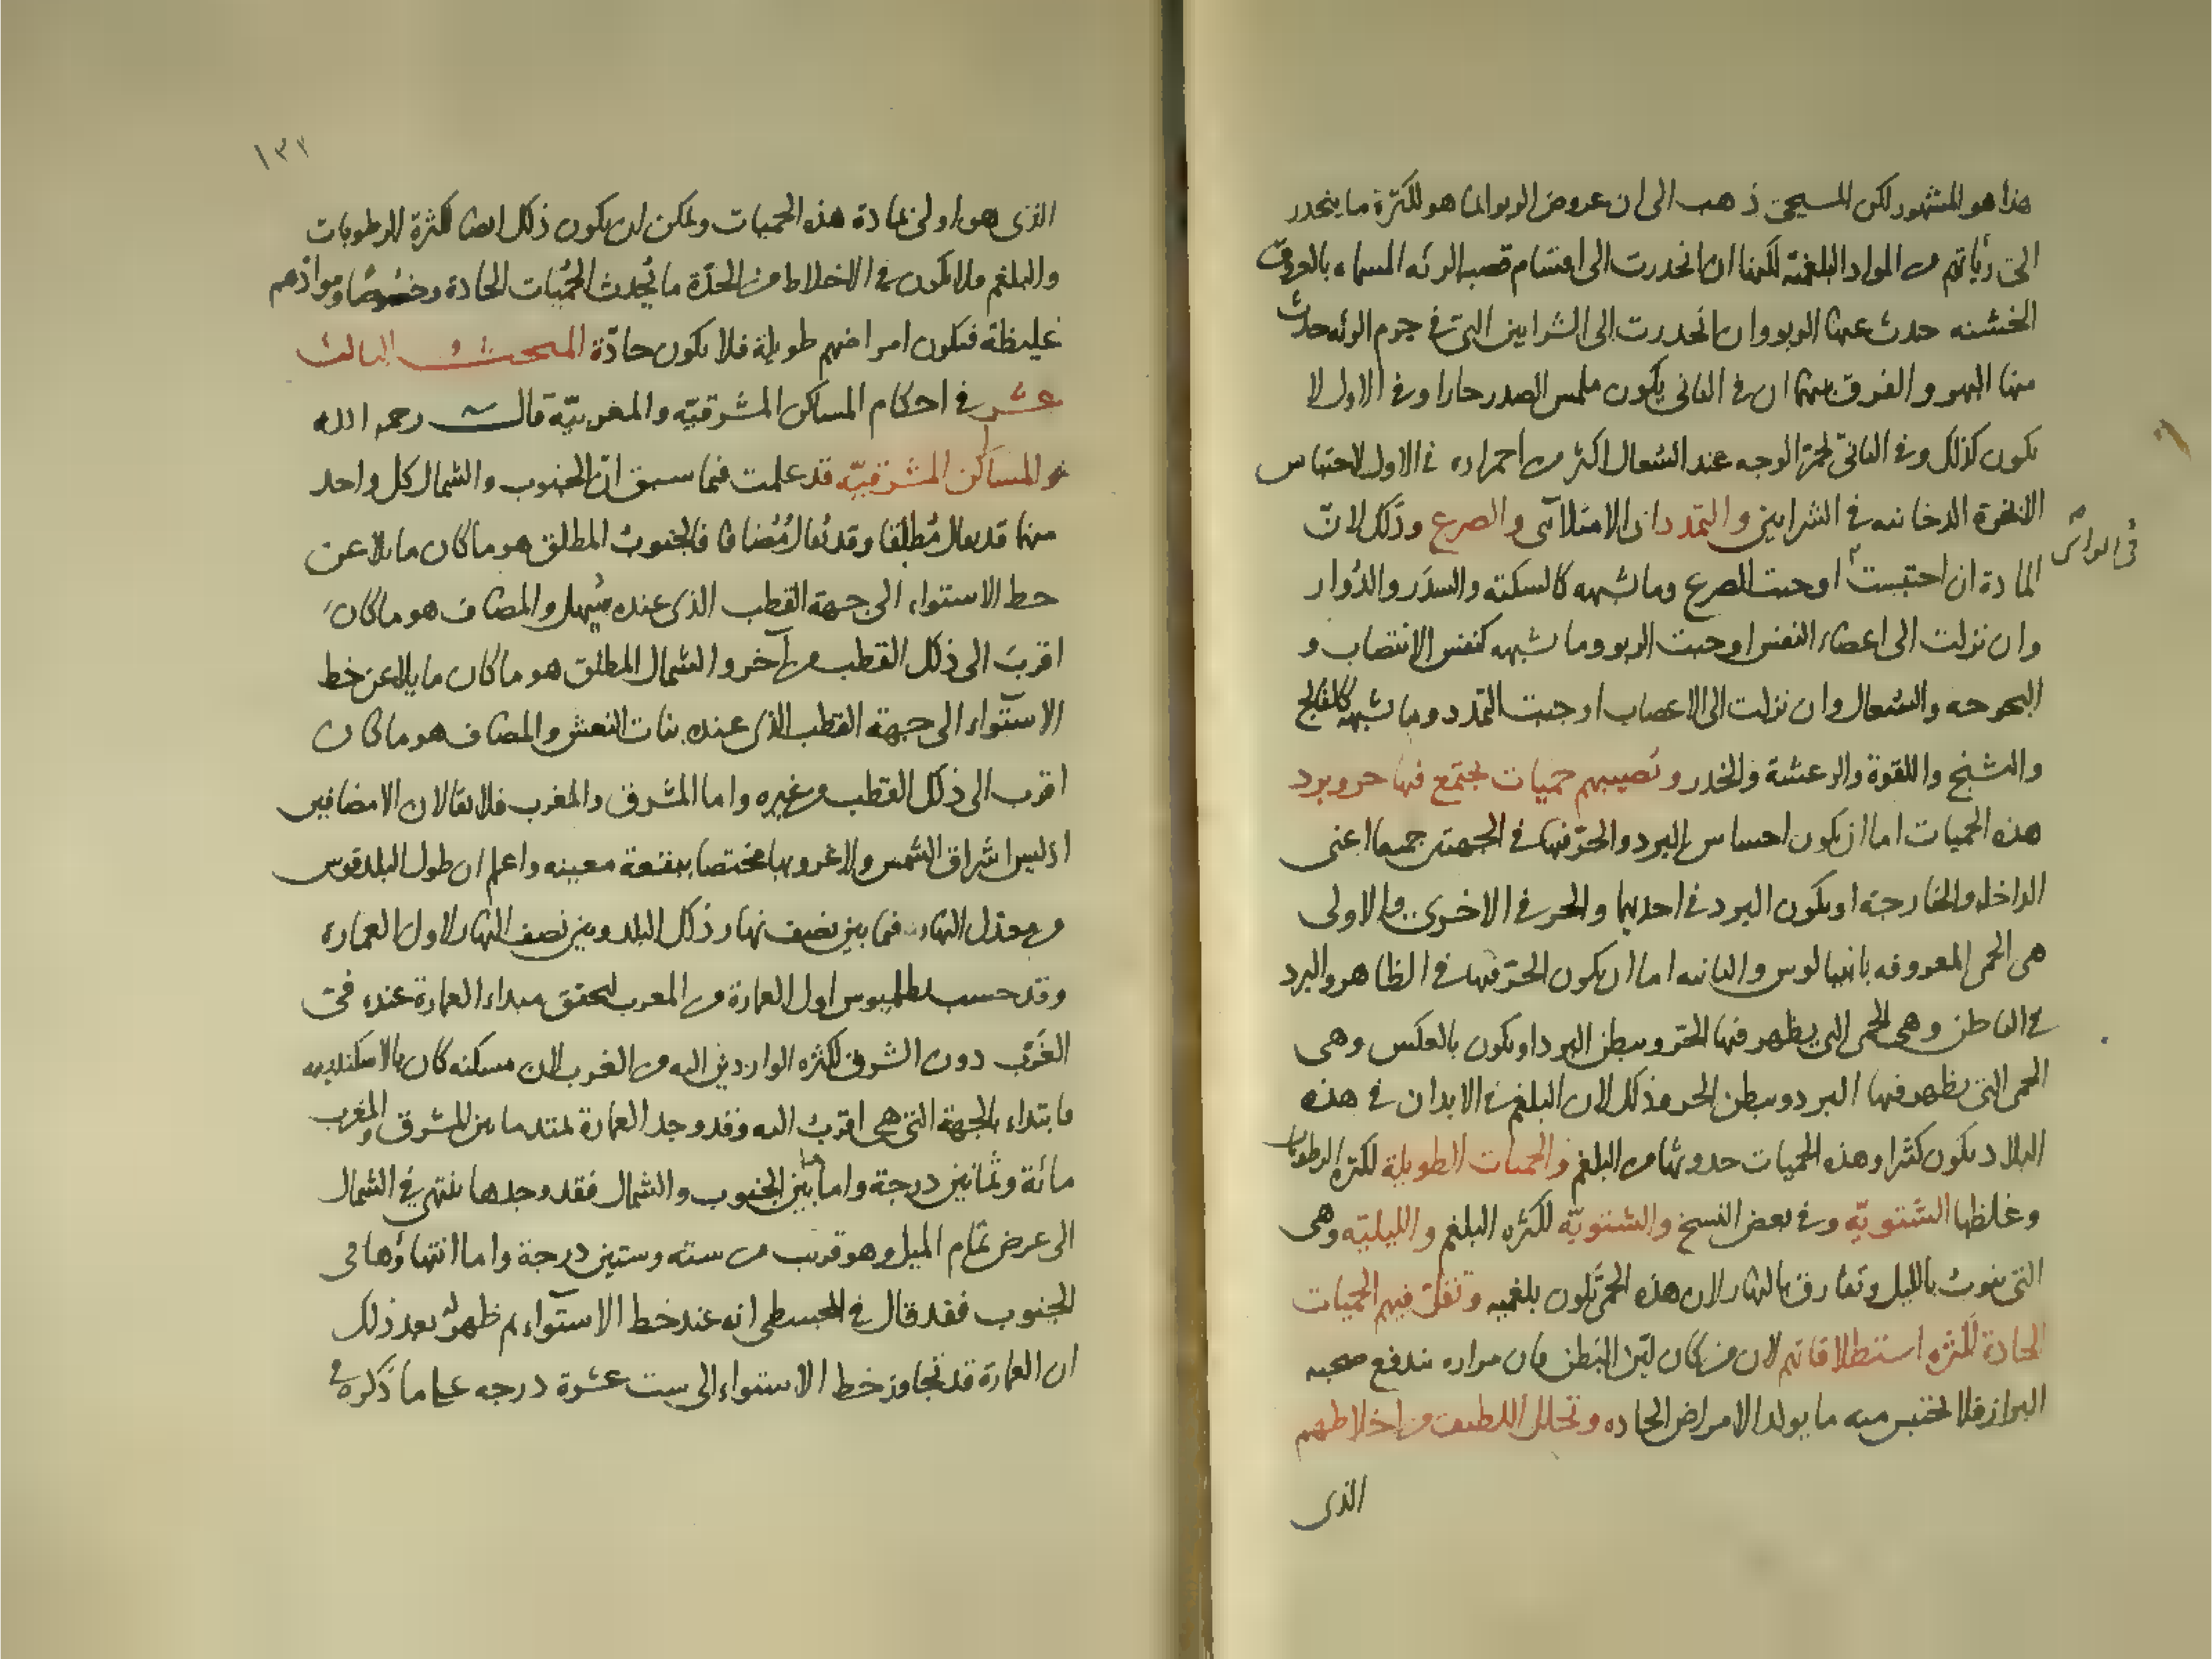 هذا هو المشهور لكن المسيحى ذهب الى ان عروض الربو انما هو لكثرة ما ينحدر
الى رياتهم من المواد البلغمية لكنها ان انحدرت الى اقسام قصبه الرئه المسماه بالعروق
الخشنه حدث عنها الربو وان انحدرت الى الشرايين التى فى جرم الرئه حدث
منها البهر و الفرق بينهما ان فى الثانى يكون ملمس الصدر حارا وفى الاول لا
يكون كذلك وفى الثانى حمرة الوجه عند السعال اكثر من احمراره فى الاول لاحتباس
الابخرة الدخانيه فى الشرايين والتمدد ان الامتلآئى والصرع وذلك لان
المادة ان احتبست اوجبت الصرع وما شبهه كالسكته والسدر والدوار
فى الراس
وان نزلت الى اعضاء النفس اوجبت الربو وما شبهه كنفس الانتصاب و
البحوحه والسعال وان نزلت الى الاعصاب اوجبت التمدد وما شبهه كالفالج
والتشنج واللقوة والرعشة والخدر وتصيبهم حميات يجتمع فيها حر وبرد
هذه الحميات اما ان يكون احساس البرد والحر فيها فى الجهتين جميعا اعنى
الداخله والخارجة او يكون البرد فى احديهما والحر فى الاخرى والاولى
هى الحمى المعروفه بانفيالوس والثانيه اما ان يكون الحر فيها فى الظاهر والبرد
فى الباطن وهى الحمى التى يظهر فيها الحر ويبطن البرد او يكون بالعكس وهى
الحمى التى يظهر فيها البرد ويبطن الحر وذلك لان البلغم فى الابدان فى هذه
البلاد يكون كثيرا وهذه الحميات حدوثها من البلغم والحميات الطويلة لكثرة الرطوبات
وغلظها الشتويّه وفى بعض النسخ والشتويّه لكثره البلغم والليليّه وهى
التى ينوب بالليل وتفارق بالنهار لان هذه الحمى تكون بلغميه وتقلّ فيهم الحميات
الحادة لكثره استطلاقاتهم لان من كان لين البطن فان مراره يندفع صحبه
البراز فلا يحتبس منه ما يولد الامراض الحاده وتحلل اللطيف من اخلاطهم
الذى
١٣٢
الذى هو اولى بمادة هذه الحميات ويمكن ان يكون ذلك ايضا لكثرة الرطوبات
والبلغم فلا يكون فى الاخلاط من الحدّة ما تحدث الحميات الحادة وخصوصا وموادهم
غليظة فتكون امراضهم طويلة فلا يكون حادّة المبحث الثالث
عشر فى احكام المساكن المشرقيّه والمغربيّة قال رحمه الله
فى المساكن المشرقيّه قد علمت فيما سبق ان الجنوب والشمال كل واحد
منهما قد يقال مُطلقا وقد يُقال مُضافا فالجنوب المطلق هو ما كان مايلا عن
خط الاستواء الى جهة القطب الذى عنده سُهيل والمضاف هو ما كان
اقرب الى ذلك القطب من آخر والشمال المطلق هو ما كان مايلا عن خط
الاستواء الى جهة القطب الذى عنده بنات النعش والمضاف هو ما كان
اقرب الى ذلك القطب من غيره واما المشرق والمغرب فلا يقالان الا مضافين
اذ ليس اشراق الشمس ولا غروبها مختصا ببقعة معينه واعلم ان طول البلد قوس
من معدل النهار فيما بين نصف نهار ذلك البلد وبين نصف النهار لاول العمارة
وقد حسب بطلميوس اول العمارة من المغرب لتحقق مبداء العمارة عنده فى
الغَرْب دون الشرق لكثره الواردين اليه من الغرب لان مسكنه كان بالاسكندريه
فابتداء بالجهة التى هى اقرب اليه وقد وجد العمارة تمتد ما بين المشرق والمغرب
مائة وثمانين درجة واما ما بين الجنوب والشمال فقد وجدها ينتهى فى الشمال
الى عرض تمام الميل وهو قريب من سته وستين درجة واما انتهاؤها فى
الجنوب فقد قال فى المجسطى انه عند خط الاستوآء ثم ظهر له بعد ذلك
ان العمارة قد تجاوز خط الاستواء الى ست عشرة درجه على ما ذكره فى